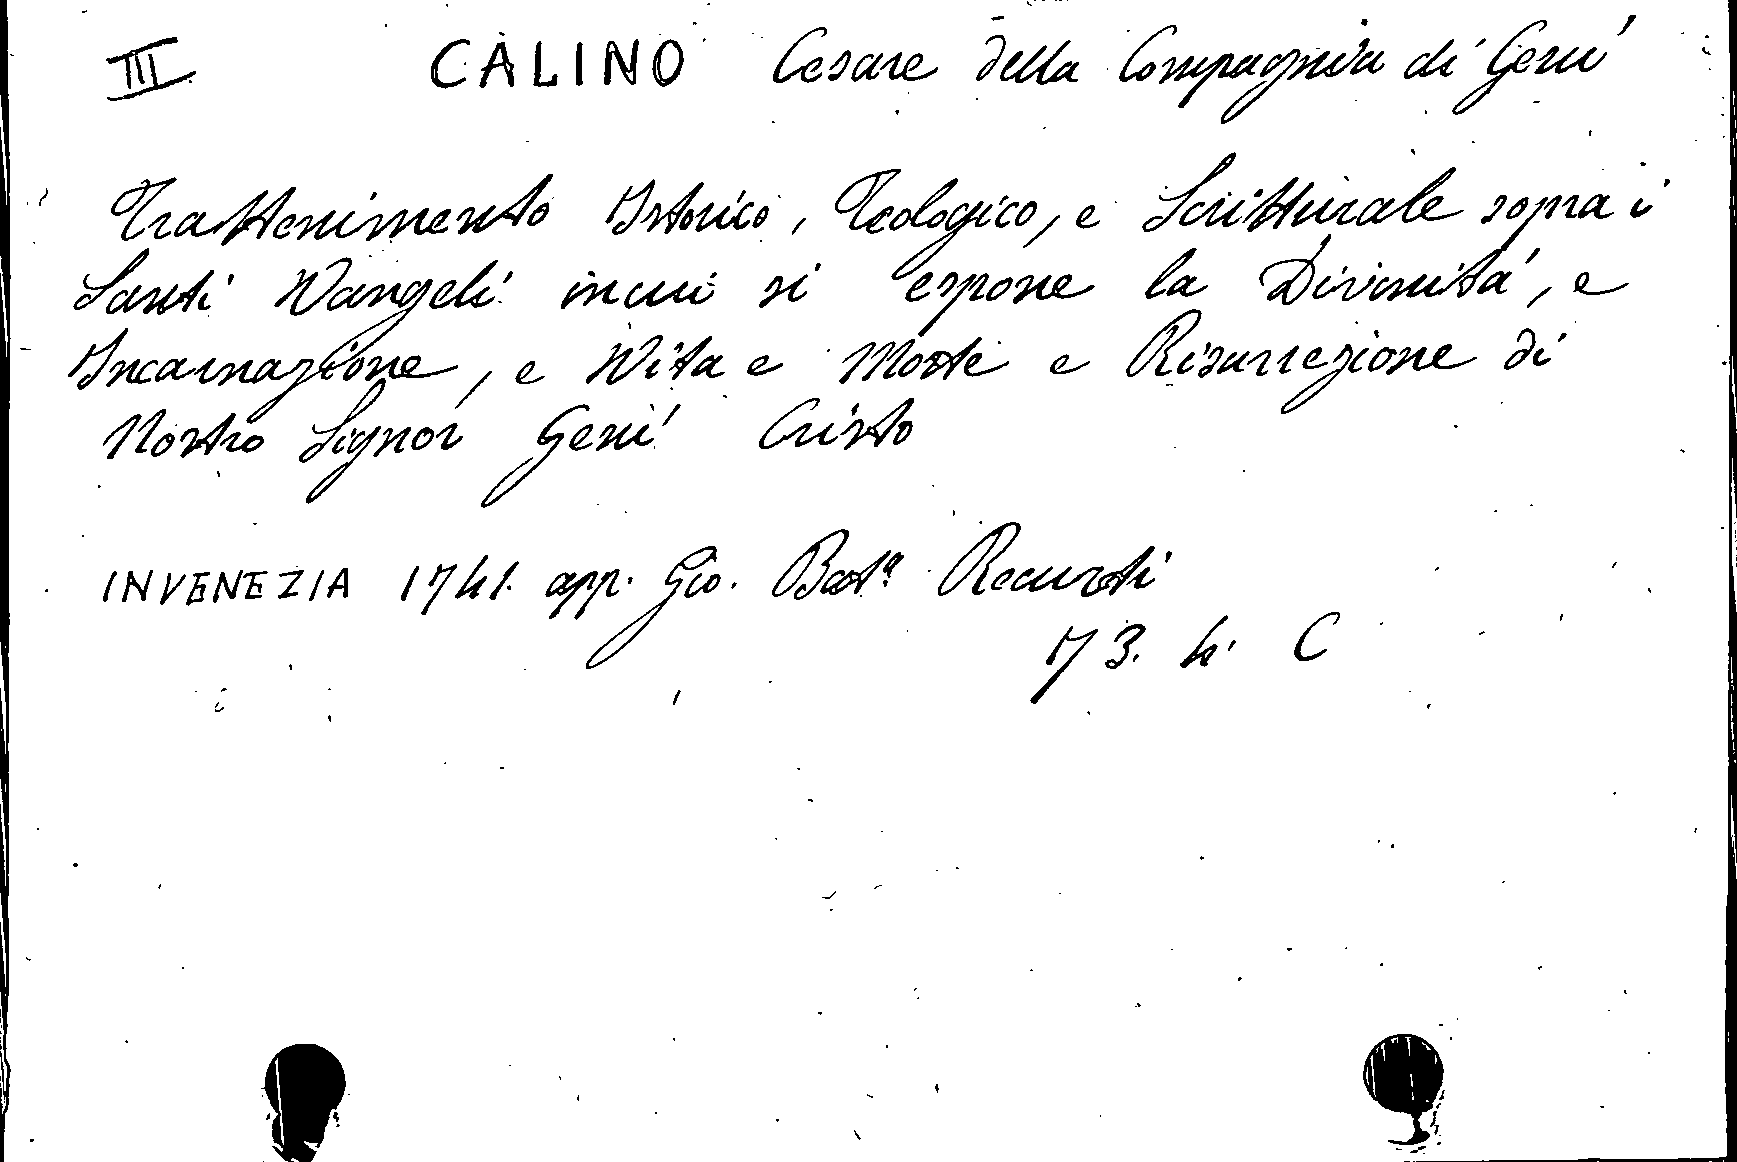 III CALINO Cesare della Compagnia di Gesù
Trattenimento Istorico, Teologico, e Scritturale sopra i
Santi Vangeli in cui si espone la Divinità, e
Incarnazione, e Vita e Morte e Risurrezione di
Nostro Signor Gesù Cristo
IN VENEZIA 1741. app. Gio. Batt.ª Recurti
73. h. C